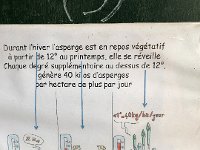 Durant l'hiver l'asperge est en repos végétatif
à partir de 12° au printemps, elle se réveille
Chaque degré supplémentaire au dessus de 12°,
génère 40 kilos d'asperges
par hectare de plus par jour
+1°=40kg/ha/jour